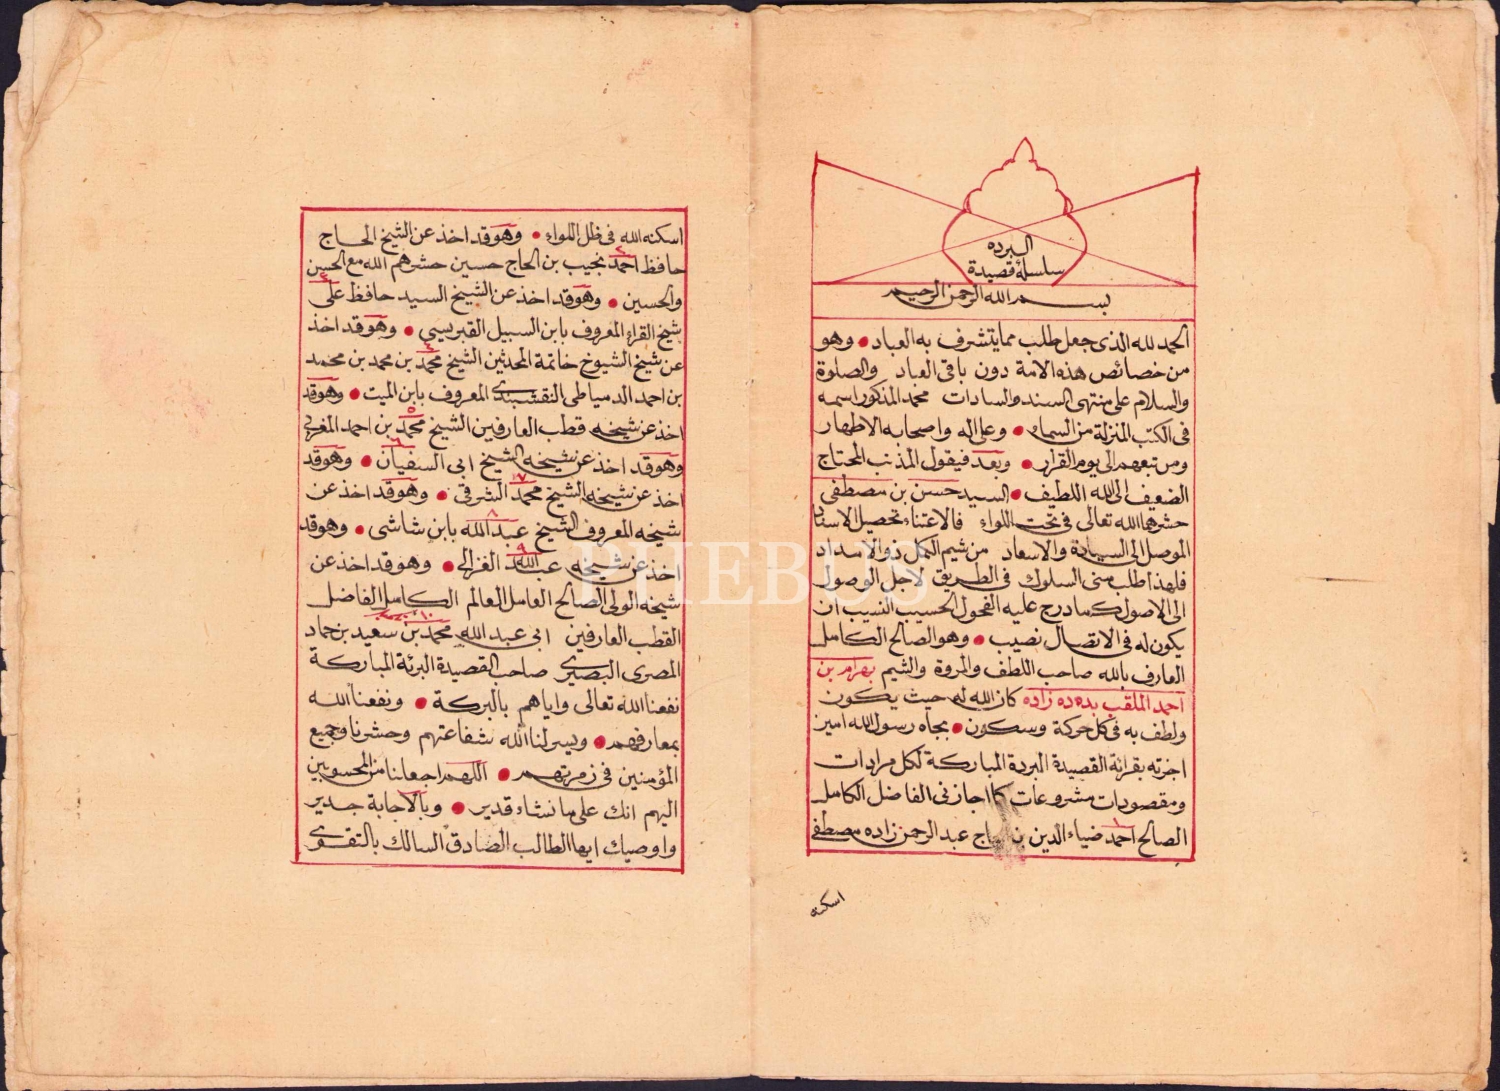 البرده
سلسلۀ قصيدة
بسم الله الرحمن الرحيم
الحمد لله الذى جعل طلب مما يتشرف به العباد وهو
من خصائص هذه الامة دون باقى العباد والصلوة
والسلام على منتهى السند والسادات محمد المذكور اسمه
فى الكتب المنزلة من السماء وعلى اله واصحابه الاطهار
ومن تبعهم الى يوم القرار وبعد فيقول المذنب المحتاج
الضعيف الى الله اللطيف السيد حسن بن مصطفى
حشرهما الله تعالى فى تحت اللواء فالاعتناء تحصيل الاسناد
الموصل الى السيادة والاسعاد من شيم الكمل ذو الامداد
فلهذا طلب منى السلوك فى الطريق لاجل الوصول
الى الاصول كما درج عليه الفحول الحسيب النسيب ان
يكون له فى الاتصال نصيب وهو الصالح الكامل
العارف بالله صاحب اللطف والمروة والشيم بهرام بن
احمد الملقب بده ده زاده كان الله له حيث يكون
ولطف به فى كل حركة وسكون بجاه رسول الله امين
اجزته بقرائة القصيدة البردة المباركة لكل مرادات
ومقصودات مشروعات كما اجازنى الفاضل الكامل
١
الصالح احمد ضياء الدين بن الحاج عبد الرحمن زاده مصطفى
اسكنه
اسكنه الله فى ظل اللواء وهو قد اخذ عن الشيخ الحاج
٢
حافظ احمد نجيب بن الحاج حسين حشرهم الله مع الحسن
٣
والحسين وهو قد اخذ عن الشيخ السيد حافظ على
شيخ القراء المعروف بابن السبيل القبريسى وهو قد اخذ
٤
عن شيخ الشيوخ خاتمة المحدثين الشيخ محمد بن محمد بن محمد
بن احمد الدمياطى النقشبندى المعروف بابن الميت وهو قد
٥
اخذ عن شيخه قطب العارفين الشيخ محمد بن احمد المغربى
٦
وهو قد اخذ عن شيخه الشيخ ابى السفيان وهو قد
٧
اخذ عن شيخه الشيخ محمد الشرقى وهو قد اخذ عن
٨
شيخه المعروف الشيخ عبد الله بابن شاشى وهو قد
٩
اخذ عن شيخه عبد الله الغزالى وهو قد اخذ عن
شيخه الولى الصالح العامل العالم الكامل الفاضل
١٠
القطب العارفين ابى عبد الله محمد بن سعيد بن حماد
المصرى البصيرى صاحب القصيدة البرئة المباركة
نفعنا الله تعالى واياهم بالبركة ونفعنا الله
بمعارفهم ويسر لنا الله شفاعتهم وحشرنا وجميع
المؤمنين فى زمرتهم اللهم اجعلنا من المحسوبين
اليهم انك على ما نشاء قدير وبالاجابة جدير
واوصيك ايها الطالب الصادق السالك بالتقوى
PHEBUS